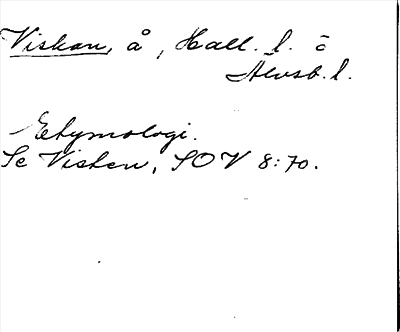 Viskan, å, Hall. l. o
Älvsb. l.
Etymologi.
Se Visken, SOV 8:70.